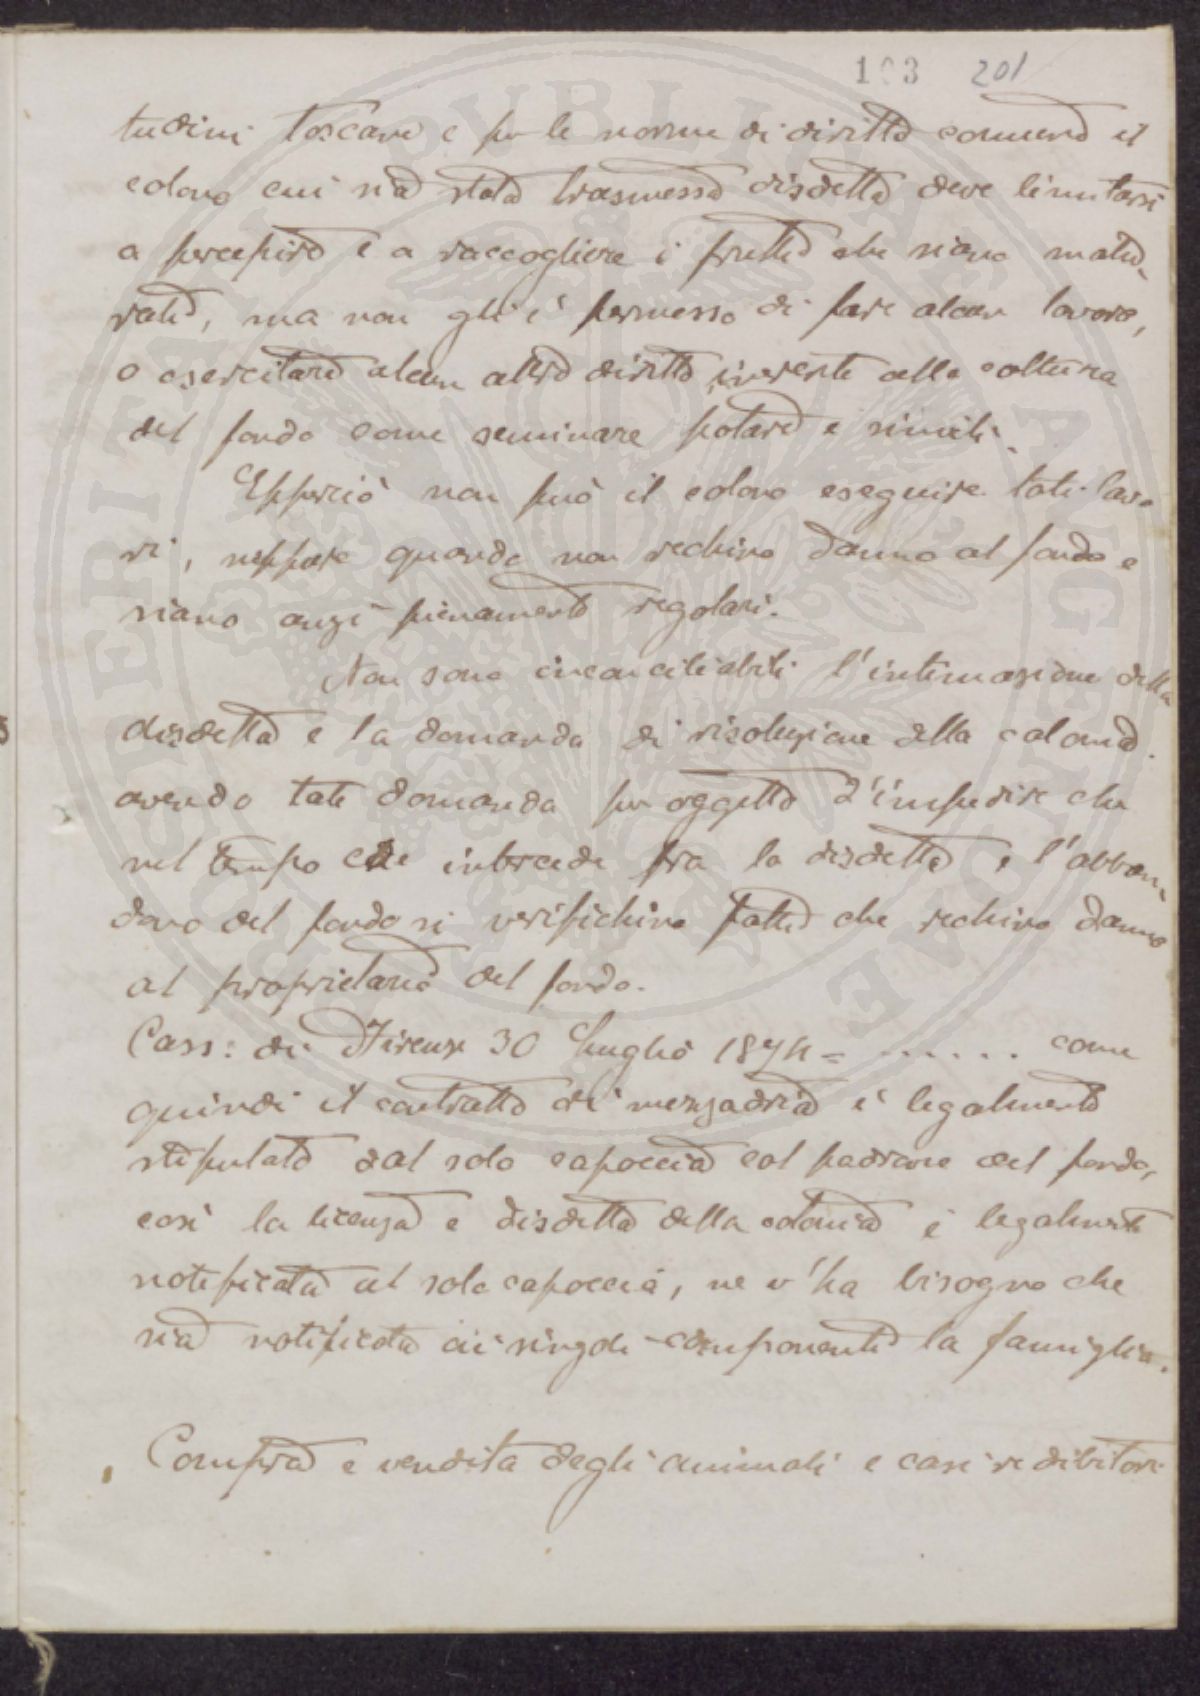 103 201
tudini toscane e per le norme di diritto comune il
colono cui sia stata trasmessa disdetta deve limitarsi
a percepire e a raccogliere i frutti che siano matu-
rati, ma non gli è permesso di fare alcun lavoro,
o esercitare alcun altro diritto inerente alla coltura
del fondo come seminare potare e simili.
Epperciò non può il colono eseguire tali lavo
ri, neppure quando non rechino danno al fondo e
siano anzi pienamente regolari.
Non sono inconciliabili l'intimazione della
disdetta e la domanda di risoluzione della colonia
avendo tale domanda per oggetto d'impedire che
nel tempo che intercede fra la disdetta e l'abban-
dono del fondo si verifichino fatti che rechino danno
al proprietario del fondo.
Cass: di Firenze 30 Luglio 1874 = ...... come
quindi il contratto di mezzadria è legalmente
stipulato dal solo capoccia col padrone del fondo,
così la licenza e disdetta della colonia è legalmente
notificata al solo capoccia, ne v'ha bisogno che
sia notificata ai singoli componenti la famiglia.
Compra e vendita degli animali e casi redibitori